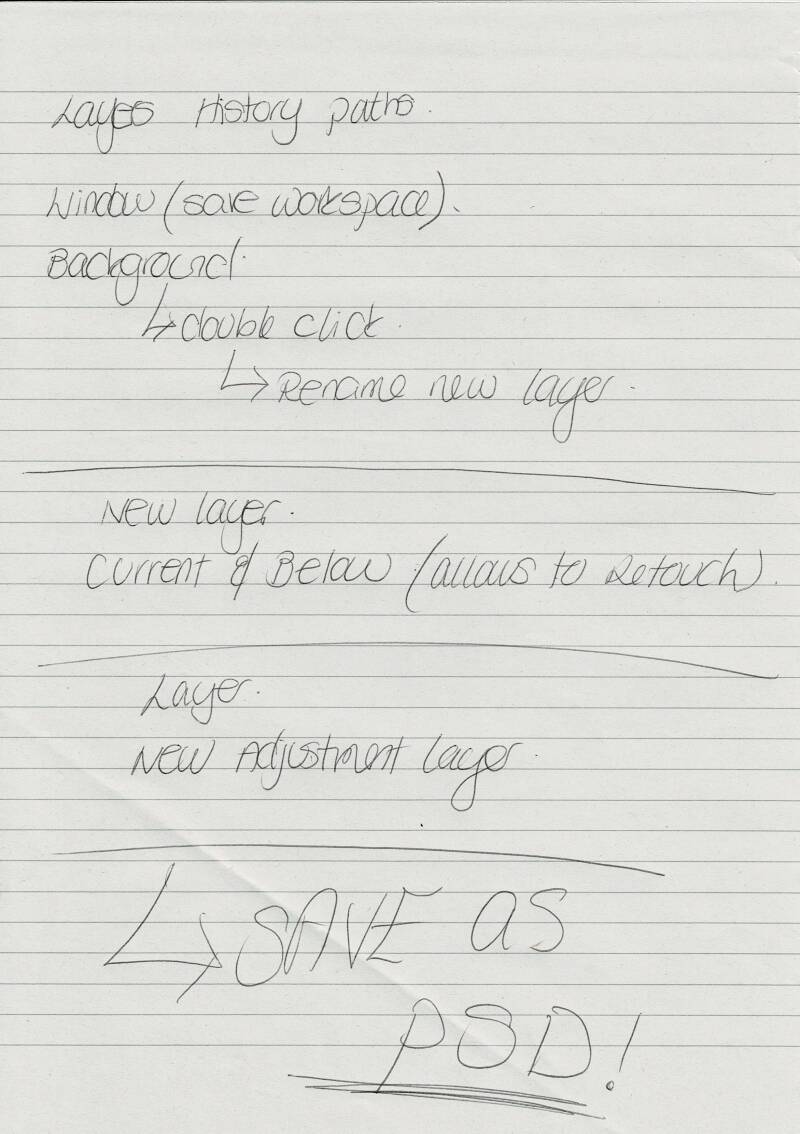 Layes History paths.
Window (save workspace).
Background.
↳ double click.
↳ Rename new layer.
New layer.
Current & Below (allows to Retouch).
Layer.
New Adjustment layer.
↳ SAVE as
PSD!